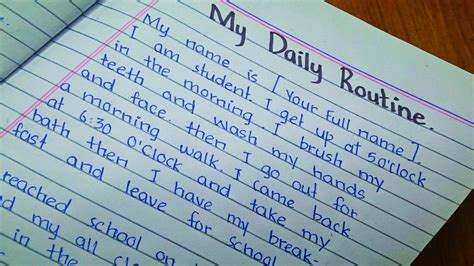 My Daily Routine.
My name is [Your full name].
I am student. I get up at 5 o'clock
in the morning. I brush my
teeth and wash my hands
and face. then I go out for
a morning walk. I came back
at 6:30 O'Clock and take my
bath then I have my break-
fast and leave for school
reached school on
my all
in the